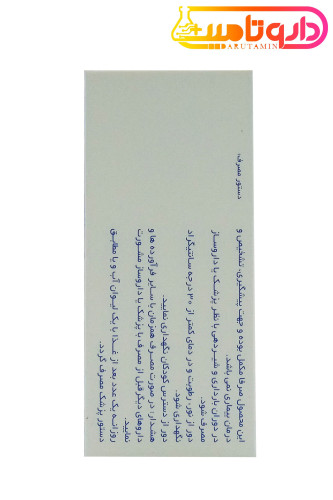 داروتامین
DARUTAMIN
دستور مصرف:
این محصول صرفا مکمل بوده و جهت پیشگیری، تشخیص و
درمان بیماری نمی باشد.
در دوران بارداری و شیردهی با نظر پزشک یا داروساز
مصرف شود.
دور از نور، رطوبت و در دمای کمتر از ۳۰ درجه سانتیگراد
نگهداری شود.
دور از دسترس کودکان نگهداری نمایید.
هشدار: در صورت مصرف همزمان با سایر فرآورده ها و
داروهای دیگر قبل از مصرف با پزشک یا داروساز مشورت
نمایید.
روزانه یک عدد بعد از غذا با یک لیوان آب و یا مطابق
دستور پزشک مصرف گردد.